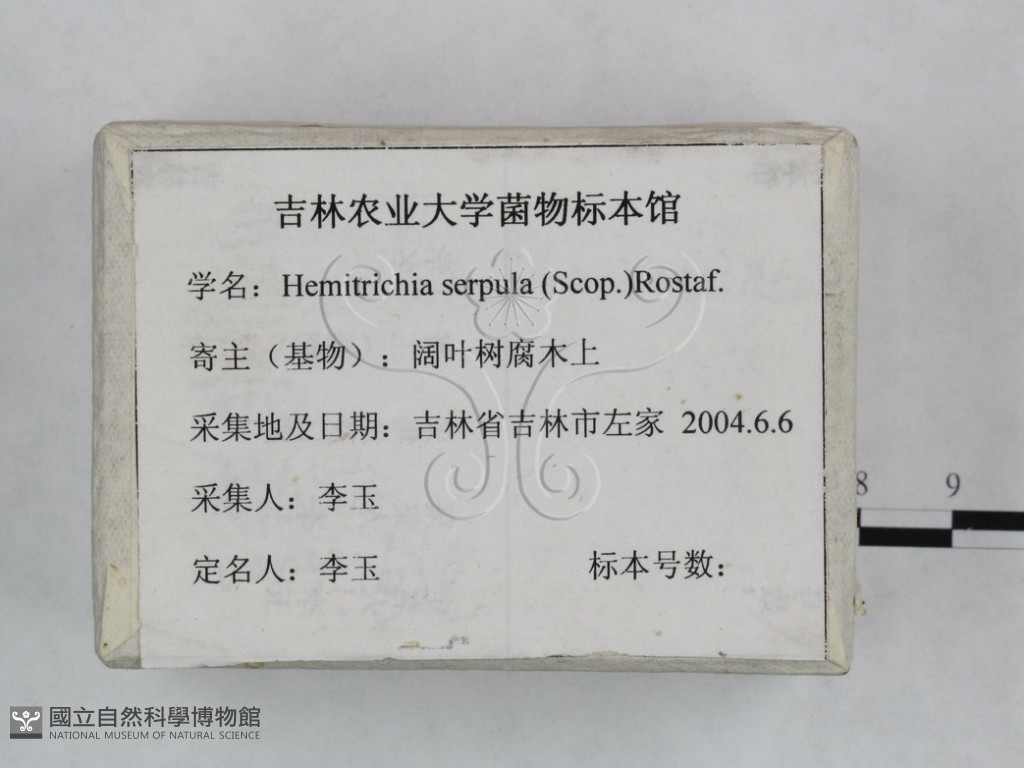 吉林农业大学菌物标本馆
学名：Hemitrichia serpula (Scop.)Rostaf.
寄主（基物）：阔叶树腐木上
采集地及日期：吉林省吉林市左家 2004.6.6
采集人：李玉
定名人：李玉 标本号数：
8 9
國立自然科學博物館
NATIONAL MUSEUM OF NATURAL SCIENCE